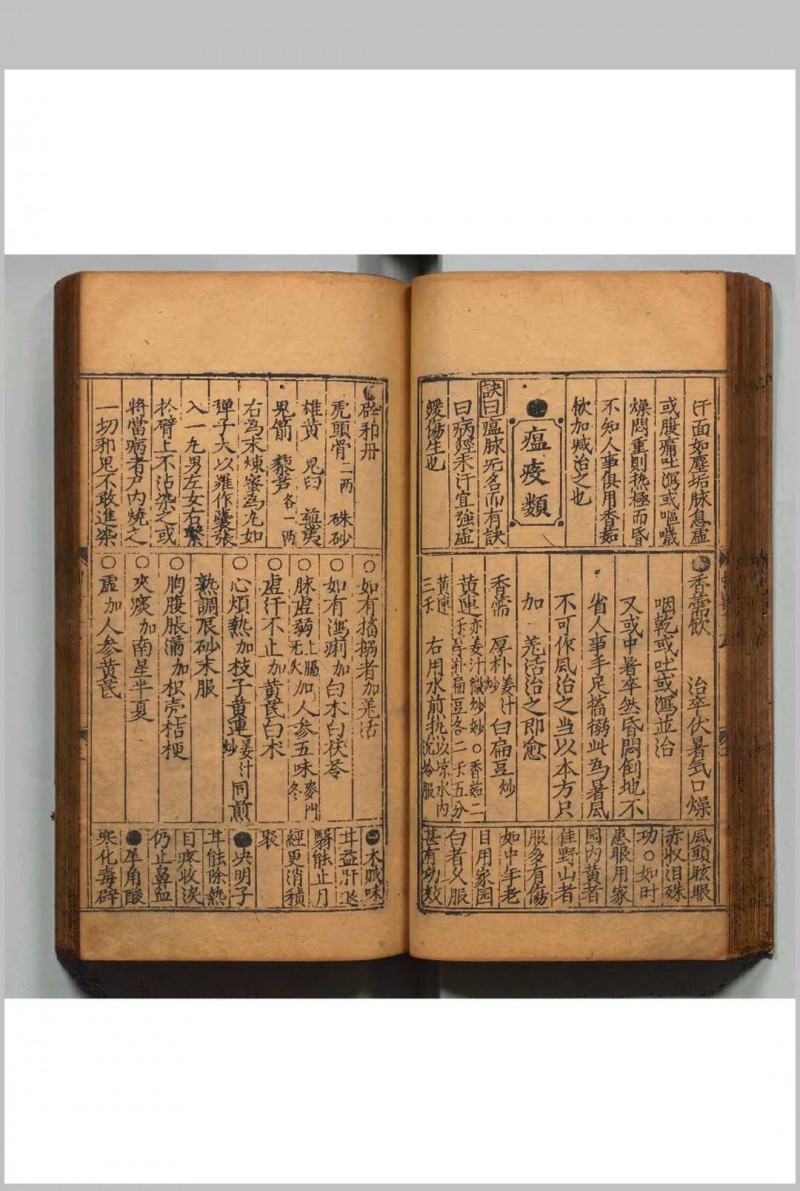 汗面如塵垢脉息虛
或腹痛吐瀉或嘔噦
燥悶重則热極而昏
不知人事俱用香茹
飲加减治之也
瘟疫類
訣曰瘟脉无名而有訣
曰病經禾汗宜強虛
緩傷生也
香薷飲 治卒伏暑氣口燥
咽乾或吐或瀉並治
又或中暑卒然昏悶倒地不
省人事手足搐搦此為暑風
不可作風治之当以本方只
加 羌活治之即愈
香薷 厚朴姜汁炒 白扁豆炒
三禾 右用水煎热以凉水内沉冷服
風頭眩眼
赤收泪殊
功〇如时
患眼用家
园内黄者
佳野山者
服多有傷
如中年老
目用家园
白者久服
甚有功效
辟邪丹
虎頭骨二兩 硃砂
雄黄 鬼臼 蕪荑
鬼箭 藜芦各一兩
右為末煉蜜為丸如
彈子大以雞作囊張
入一丸男左女右繫
於臂上不沾染之或
將當病者户内燒之
一切邪鬼不敢進染
〇如有搐搦者加羌活
〇如有瀉痢加白术白茯苓
〇脉虚弱上膈无火加人参五味麥門冬
〇虚汗不止加黄芪白术
〇心煩熱加枝子黄連姜汁炒同煎
熟調辰砂末服
〇胸腹脹滿加枳壳桔梗
〇夾痰加南星半夏
〇虚加人参黄芪
木賊味
甘益肝退
翳能止月
經更消積
聚
决明子
甘能除熱
目疼收淚
仍止鼻衄
犀角酸
寒化毒辟